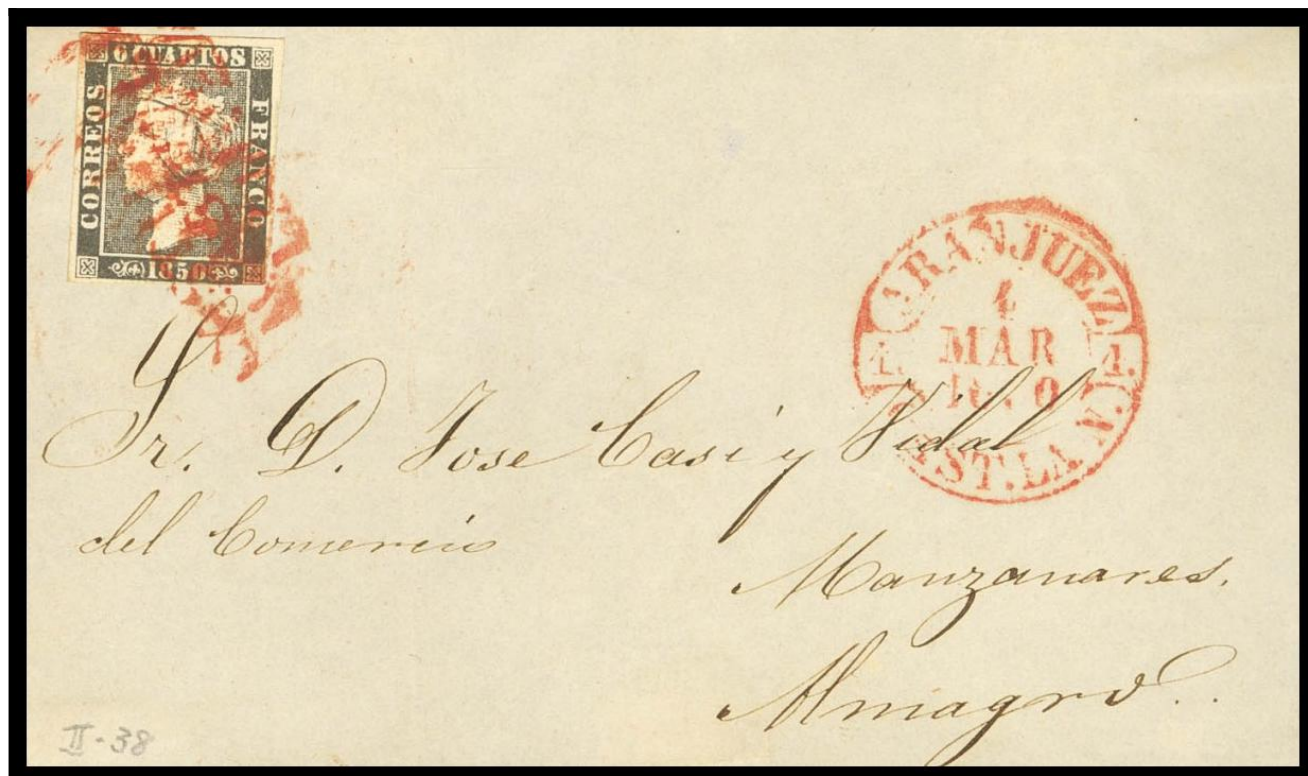 6 CUARTOS
CORREOS
FRANCO
1850
ARANJUEZ
4
MAR
1850
1.
1.
CAST. LA N.
Sr. D. Jose Casi y Vidal
del Comercio
Manzanares.
Almagro.
II-38